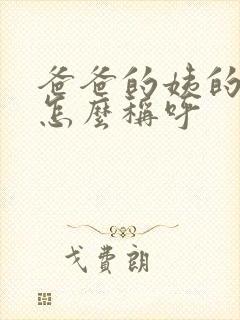 爸爸的姨的
怎麼稱呼
戈費朗